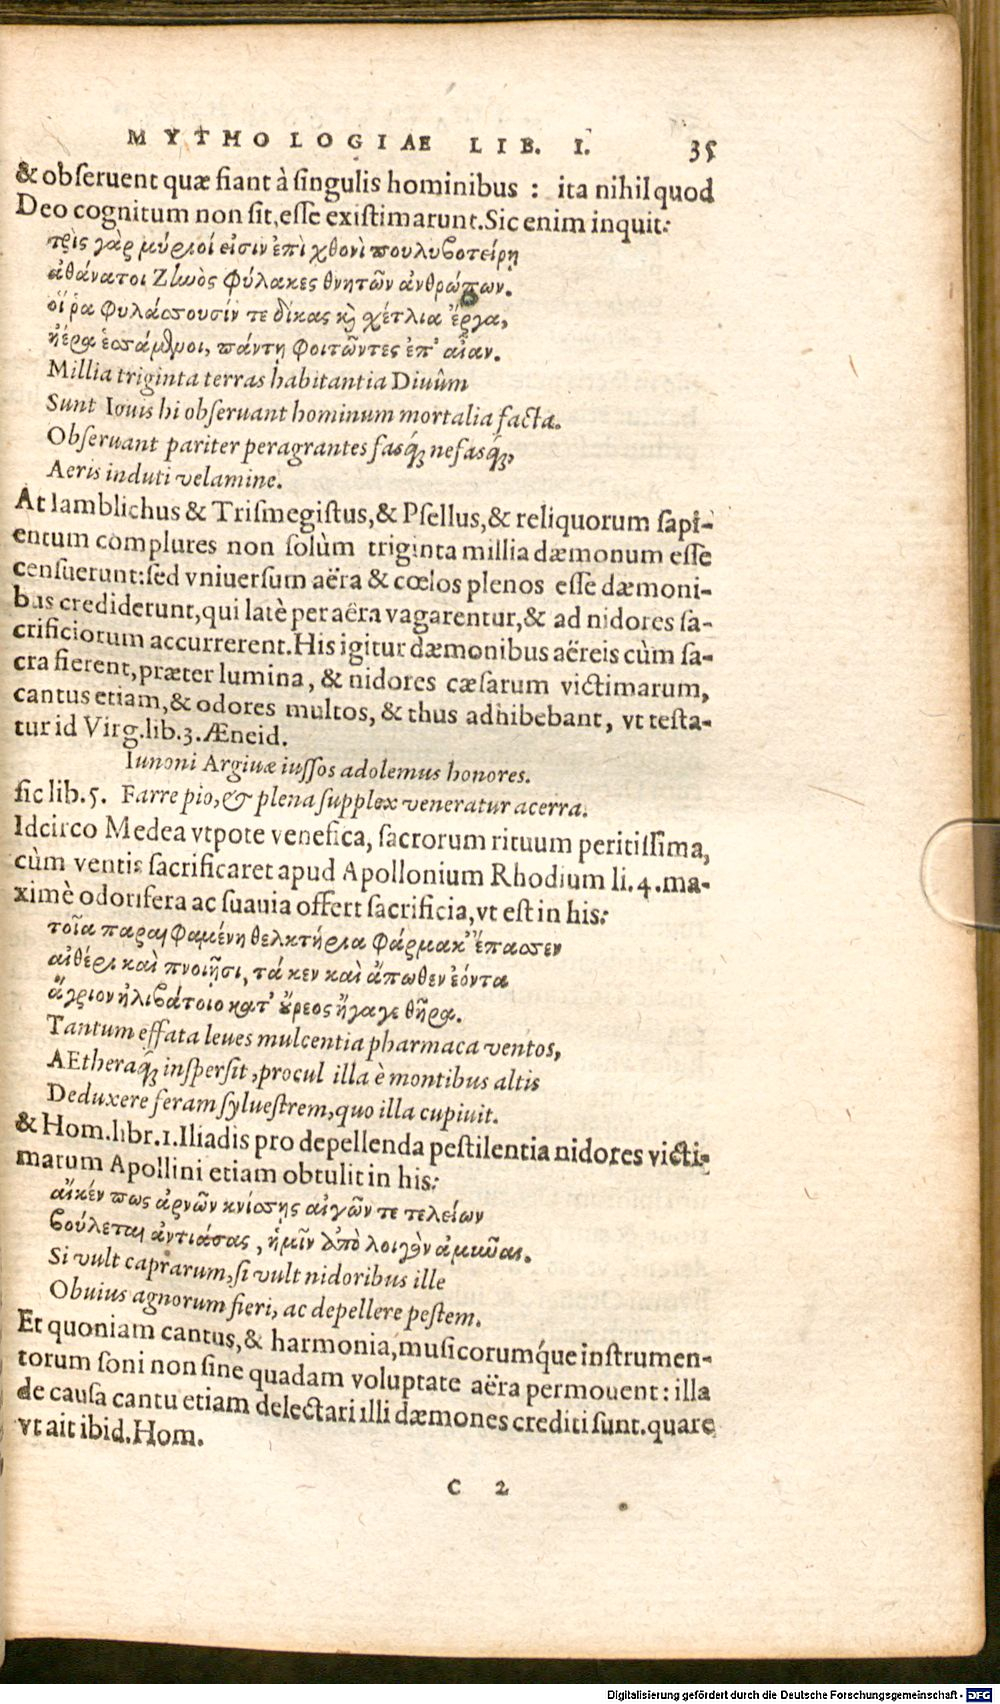 MYTHOLOGIAE LIB. I. 35
& obſeruent quæ fiant à ſingulis hominibus : ita nihil quod
Deo cognitum non ſit, eſſe exiſtimarunt. Sic enim inquit:
τρὶς γὰρ μύριοί εἰσιν ἐπὶ χθονὶ πουλυβοτείρῃ
ἀθάνατοι Ζηνὸς φύλακες θνητῶν ἀνθρώπων.
οἵ ῥα φυλάσσουσίν τε δίκας καὶ σχέτλια ἔργα,
ἠέρα ἑσσάμενοι, πάντη φοιτῶντες ἐπ' αἶαν.
Millia triginta terras habitantia Diuûm
Sunt Iouis hi obſeruant hominum mortalia facta.
Obſeruant pariter peragrantes faſq́; nefaſq́;,
Aeris induti velamine.
At Iamblichus & Triſmegiſtus, & Pſellus, & reliquorum ſapi-
entum complures non ſolùm triginta millia dæmonum eſſe
cenſuerunt: ſed vniuerſum aëra & cœlos plenos eſſe dæmoni-
bus crediderunt, qui latè per aëra vagarentur, & ad nidores ſa-
crificiorum accurrerent. His igitur dæmonibus aëreis cùm ſa-
cra fierent, præter lumina, & nidores cæſarum victimarum,
cantus etiam, & odores multos, & thus adhibebant, vt teſta-
tur id Virg. lib. 3. Æneid.
Iunoni Argiuæ iuſſos adolemus honores.
ſic lib. 5. Farre pio, & plena ſupplex veneratur acerra.
Idcirco Medea vtpote venefica, ſacrorum rituum peritiſſima,
cùm ventis ſacrificaret apud Apollonium Rhodium li. 4. ma-
ximè odorifera ac ſuauia offert ſacrificia, vt eſt in his:
τοῖα παραιφαμένη θελκτήρια φάρμακ' ἔπασσεν
αἰθέρι καὶ πνοιῇσι, τά κεν καὶ ἄπωθεν ἐόντα
ἄγριον ἠλιβάτοιο κατ' οὔρεος ἤγαγε θῆρα.
Tantum effata leues mulcentia pharmaca ventos,
AEtheraq́; inſperſit, procul illa è montibus altis
Deduxere feram ſylueſtrem, quo illa cupiuit.
& Hom. libr. 1. Iliadis pro depellenda peſtilentia nidores victi-
marum Apollini etiam obtulit in his:
αἴκέν πως ἀρνῶν κνίσσης αἰγῶν τε τελείων
βούλεται ἀντιάσας, ἡμῖν ἀπὸ λοιγὸν ἀμῦναι.
Si vult caprarum, ſi vult nidoribus ille
Obuius agnorum fieri, ac depellere peſtem.
Et quoniam cantus, & harmonia, muſicorumq́ue inſtrumen-
torum ſoni non ſine quadam voluptate aëra permouent: illa
de cauſa cantu etiam delectari illi dæmones crediti ſunt. quare
vt ait ibid. Hom.
C 2
Digitalisierung gefördert durch die Deutsche Forschungsgemeinschaft - DFG